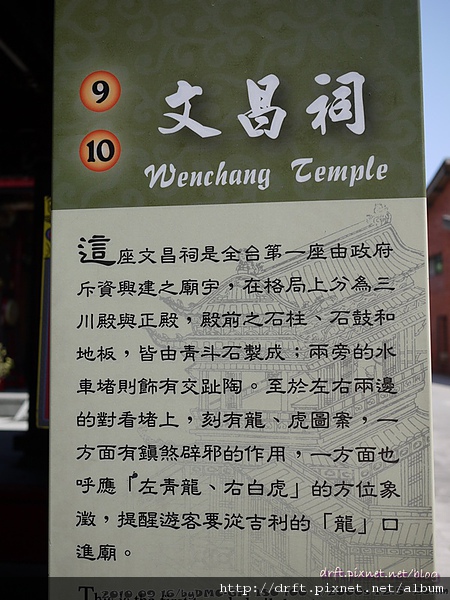 9
文昌祠
10
Wenchang Temple
這座文昌祠是全台第一座由政府
斥資興建之廟宇，在格局上分為三
川殿與正殿，殿前之石柱、石鼓和
地板，皆由青斗石製成；兩旁的水
車堵則飾有交趾陶。至於左右兩邊
的對看堵上，刻有龍、虎圖案，一
方面有鎮煞辟邪的作用，一方面也
呼應「左青龍、右白虎」的方位象
徵，提醒遊客要從吉利的「龍」口
進廟。
drft.pixnet.net/blog
http://drft.pixnet.net/album